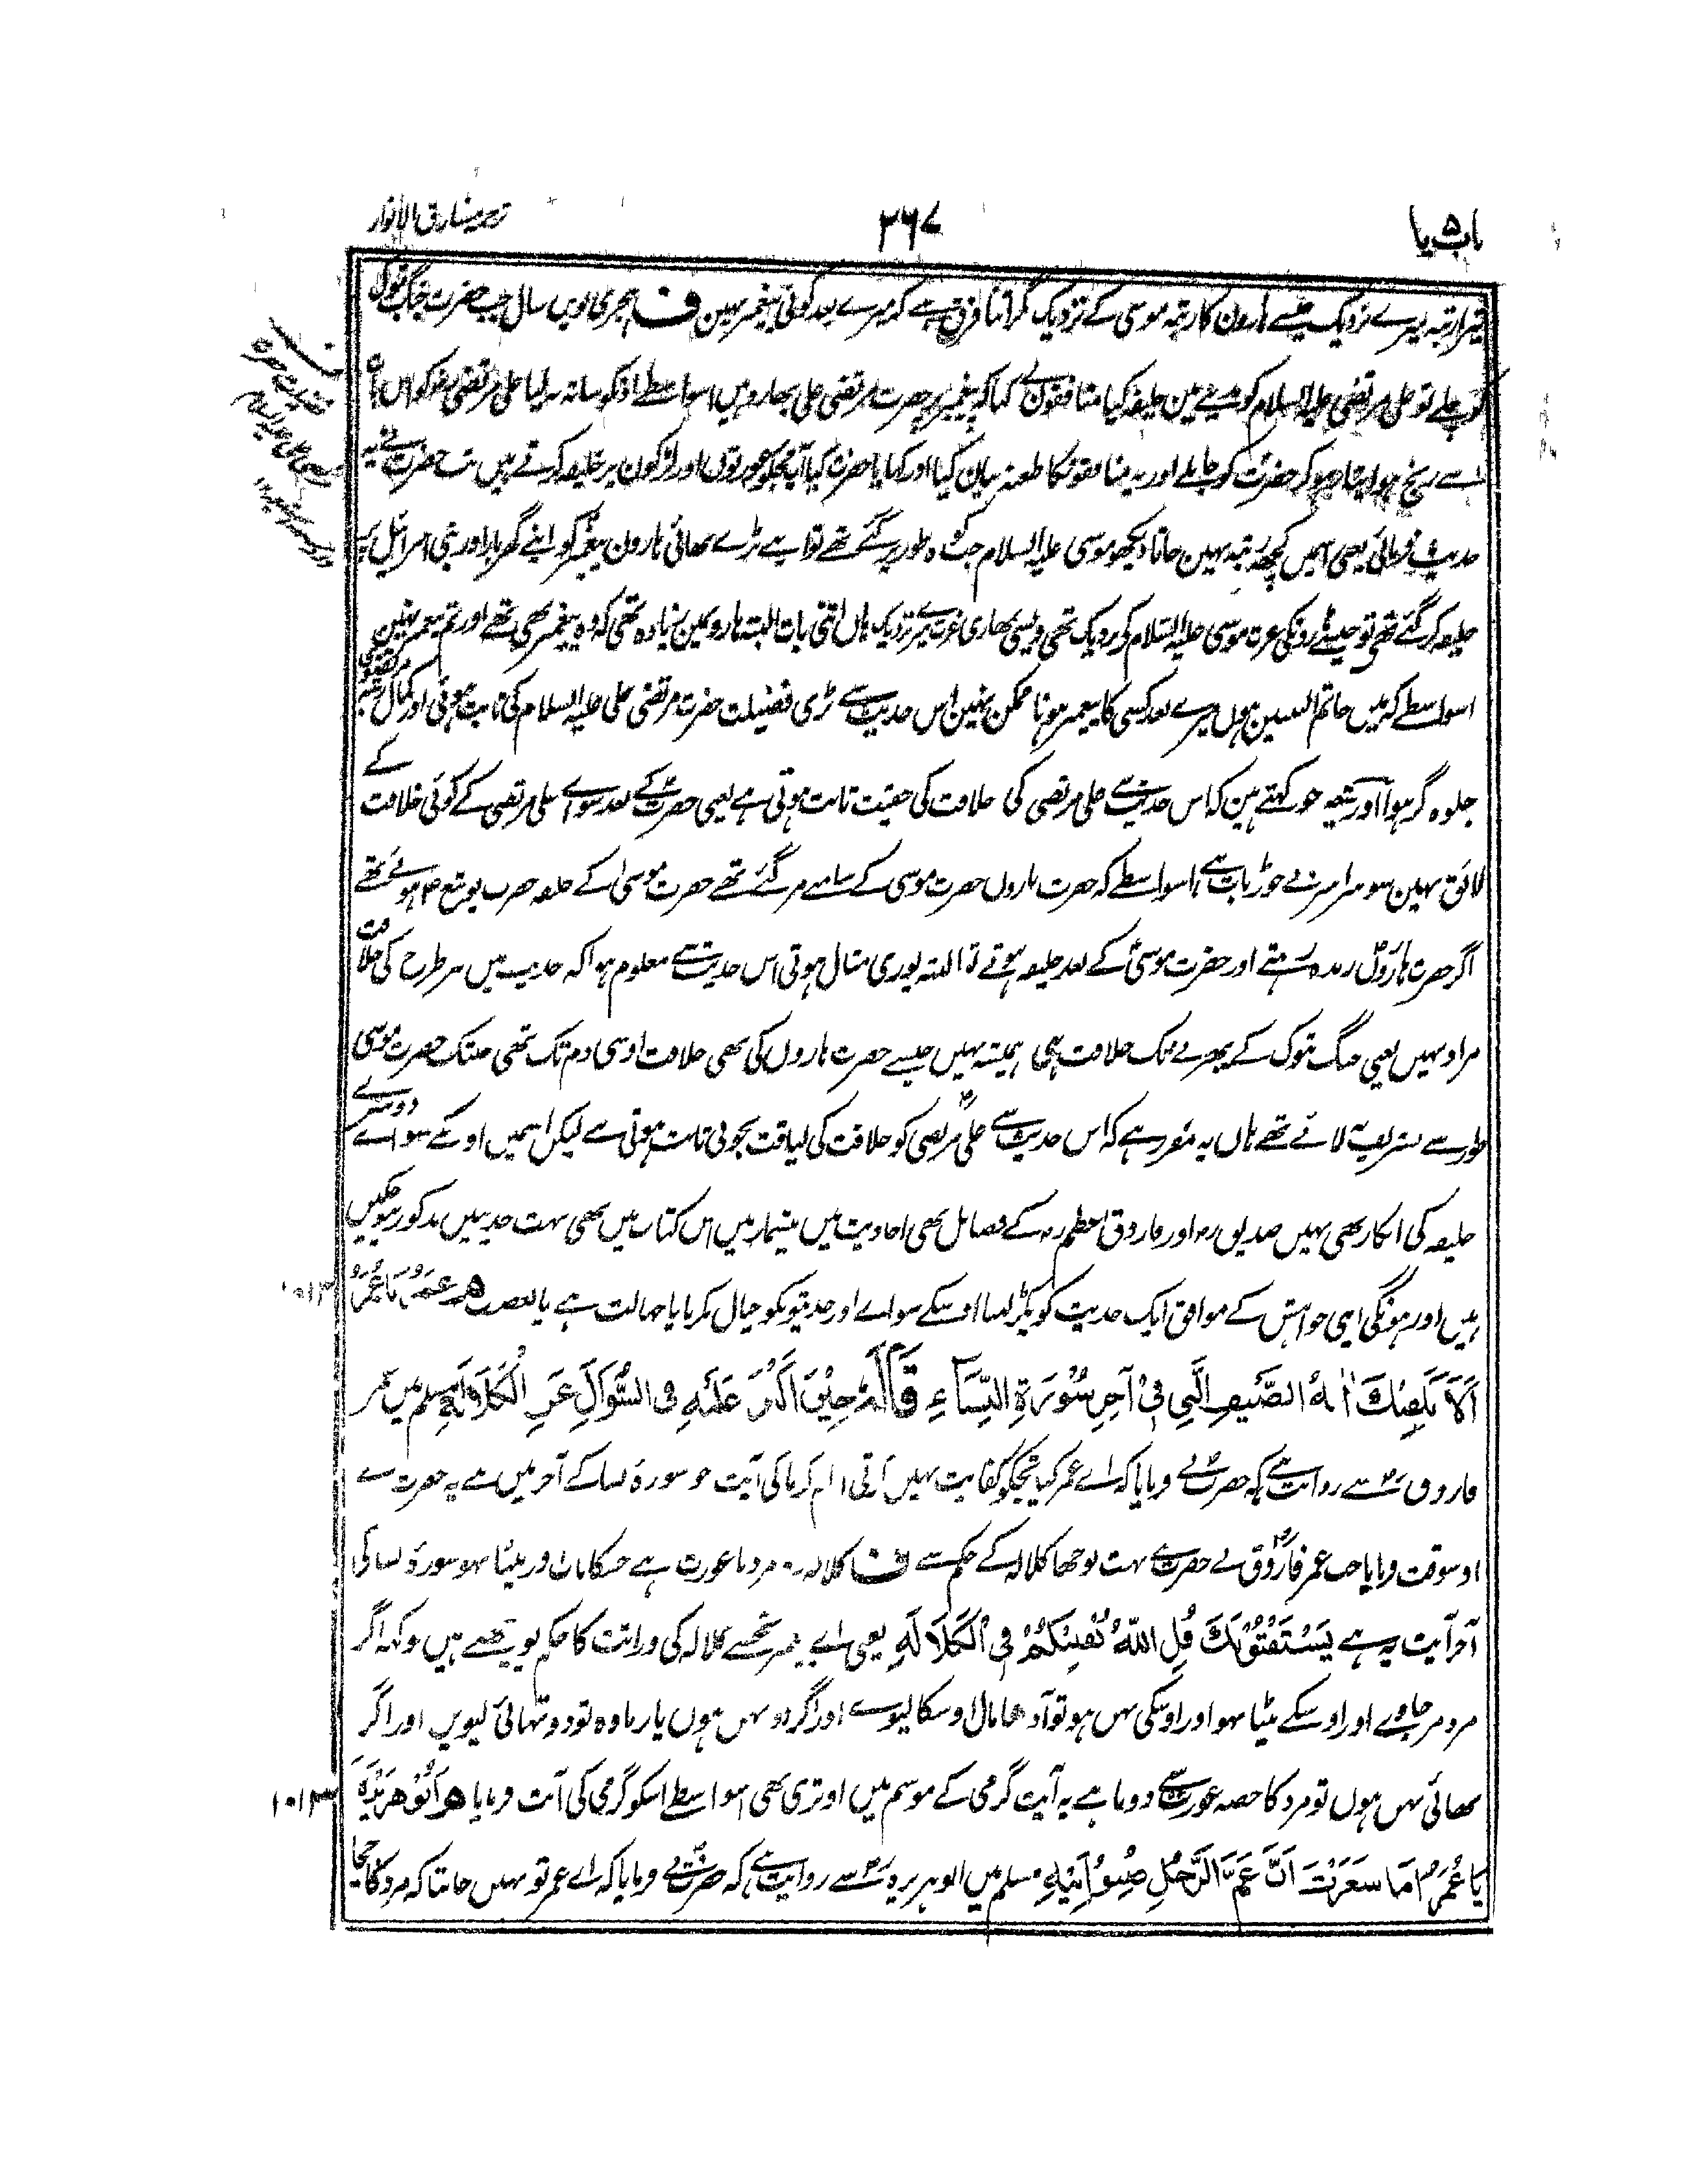 باب ۵ یا
۳۶۷
ترجمہ مشارق الانوار
تیرا رتبہ میرے نزدیک جیسے ہارون کا رتبہ موسی کے نزدیک مگر اتنا فرق ہے کہ میرے بعد کوئی پیغمبر نہین ف ہجری نویں سال جب حضرت جنگ تبوک
کو چلے تو علی مرتضی علیہ السلام کو مدینے مین خلیفہ کیا منافقون نے کہا کہ پیغمبر پر حضرت مرتضی علی بھارو ہیں اسواسطے انکو ساتھ نہ لیا علی مرتضی کو اس بات
سے رنج ہوا اپنا ہو کر حضرت کو جا ملے اور یہ منافقونکا طعنہ بیان کیا اور کہا یا حضرت کیا آپ مجکو عورتوں اور لڑکون پر خلیفہ کرتے ہیں تب حضرت نے یہ
حدیث فرمائی یعنی اسمیں کچھ رتبہ نہین جاتا دیکھو موسی علیہ السلام جب کوہ طور پر گئے تھے تو اپنے بڑے بھائی ہارون پیغمبر کو اپنے گھربار اور بنی اسرائیل پر
خلیفہ کر گئے تھے تو جیسے ہارونکی عزت موسی علیہ السلام کی نزدیک تھی ویسی تمھاری عزت میرے نزدیک ہاں اتنی بات البتہ ہارو نمین زیادہ تھی کہ وہ پیغمبر بھی تھے اور تم پیغمبر نہین
اسواسطے کہ میں خاتم النبیین ہوں میرے بعد کسی کا پیغمبر ہونا ممکن نہین اس حدیث سے بڑی فضیلت حضرت مرتضی علی علیہ السلام کی ثابت ہوئی اور کمال رتبہ مرتضوی
جلوہ گر ہوا اور شیعہ جو کہتے ہین کہ اس حدیث سے علی مرتضی کی خلافت کی حقیت ثابت ہوتی ہے یعنی حضرت کے بعد سواے علی مرتضی کے کوئی خلافت کے
لائق نہین سو سراسر بے جوڑ بات ہے اسواسطے کہ حضرت ہاروں حضرت موسی کے سامنے مر گئے تھے حضرت موسیٰ کے خلیفہ حضرت یوشع ہوئے تھے
اگر حضرت ہاروں زندہ رہتے اور حضرت موسیٰ کے بعد خلیفہ ہوتے تو البتہ پوری مثال ہوتی اس حدیث سے معلوم ہوا کہ حدیث میں ہر طرح کی خلافت
مراد نہیں یعنی جنگ تبوک کے پھرنے تک خلافت تھی ہمیشہ نہیں جیسے حضرت ہاروں کی بھی خلافت اوسی دم تک تھی جبتک حضرت موسی
طور سے تشریف لائے تھے ہاں یہ مقرر ہے کہ اس حدیث سے علی مرتضی کو خلافت کی لیاقت بخوبی ثابت ہوتی ہے لیکن اسمیں اوسکے سواے دوسرے
خلیفہ کی انکار بھی نہیں صدیق رض اور فاروق اعظم رض کے فضائل بھی احادیث میں بیشمار ہیں اس کتاب میں بھی بہت حدیثیں مذکور ہو چکیں
ہیں اور ہونگی اپنی خواہش کے موافق ایک حدیث کو پکڑ لینا اوسکے سواے اور حدیثونکو خیال نکرنا یا جہالت ہے یا تعصب ھر عمرو یَا عُمَرُ
اَلَا یَکْفِیْكَ اٰیَۃُ الصَّیْفِ الَّتِی فِیْ آخِرِ سُوْرَۃِ النِّسَاءِ قَالَہٗ حِیْنَ اَکْثَرَ عَلَیْہِ فِی السُّوَالِ عَنِ الْکَلَالَۃِ مسلم میں عمر
فاروق رض سے روایت ہے کہ حضرت نے فرمایا کہ اے عمر کیا تجکو کفایت نہیں کرتی گرما کی آیت جو سورۂ نسا کے آخر میں ہے یہ حضرت نے
اوسوقت فرمایا جب عمر فاروق نے حضرت سے بہت پوچھا کلالہ کے حکم سے ف کلالہ وہ مرد یا عورت ہے جسکا باپ اور بیٹا نہو سورۂ نسا کی
آخر آیت یہ ہے یَسْتَفْتُوْنَكَ قُلِ اللہُ یُفْتِیْکُمْ فِی الْکَلَالَۃِ یعنی اے پیغمبر تجھسے کلالہ کی وراثت کا حکم پوچھتے ہیں تو کہہ اگر
مرد مر جاوے اور اوسکے بیٹا نہو اور اوسکی بہن ہو تو آدھا مال اوسکا لیوے اور اگر دو بہن ہوں یا زیادہ تو دو تہائی لیویں اور اگر
بھائی بہن ہوں تو مرد کا حصہ عورت سے دونا ہے یہ آیت گرمی کے موسم میں اوتری تھی اسواسطے اسکو گرمی کی آیت فرمایا ھر اَبُوْ ھُرَیْرَۃَ
یَا عُمَرُ اَمَا شَعَرْتَ اَنَّ عَمَّ الرَّجُلِ صِنْوُ اَبِیْہِ مسلم میں ابو ہریرہ رض سے روایت ہے کہ حضرت نے فرمایا کہ اے عمر تو نہیں جانتا کہ مرد کا چچا
۱۰۱۲
۱۰۱۳